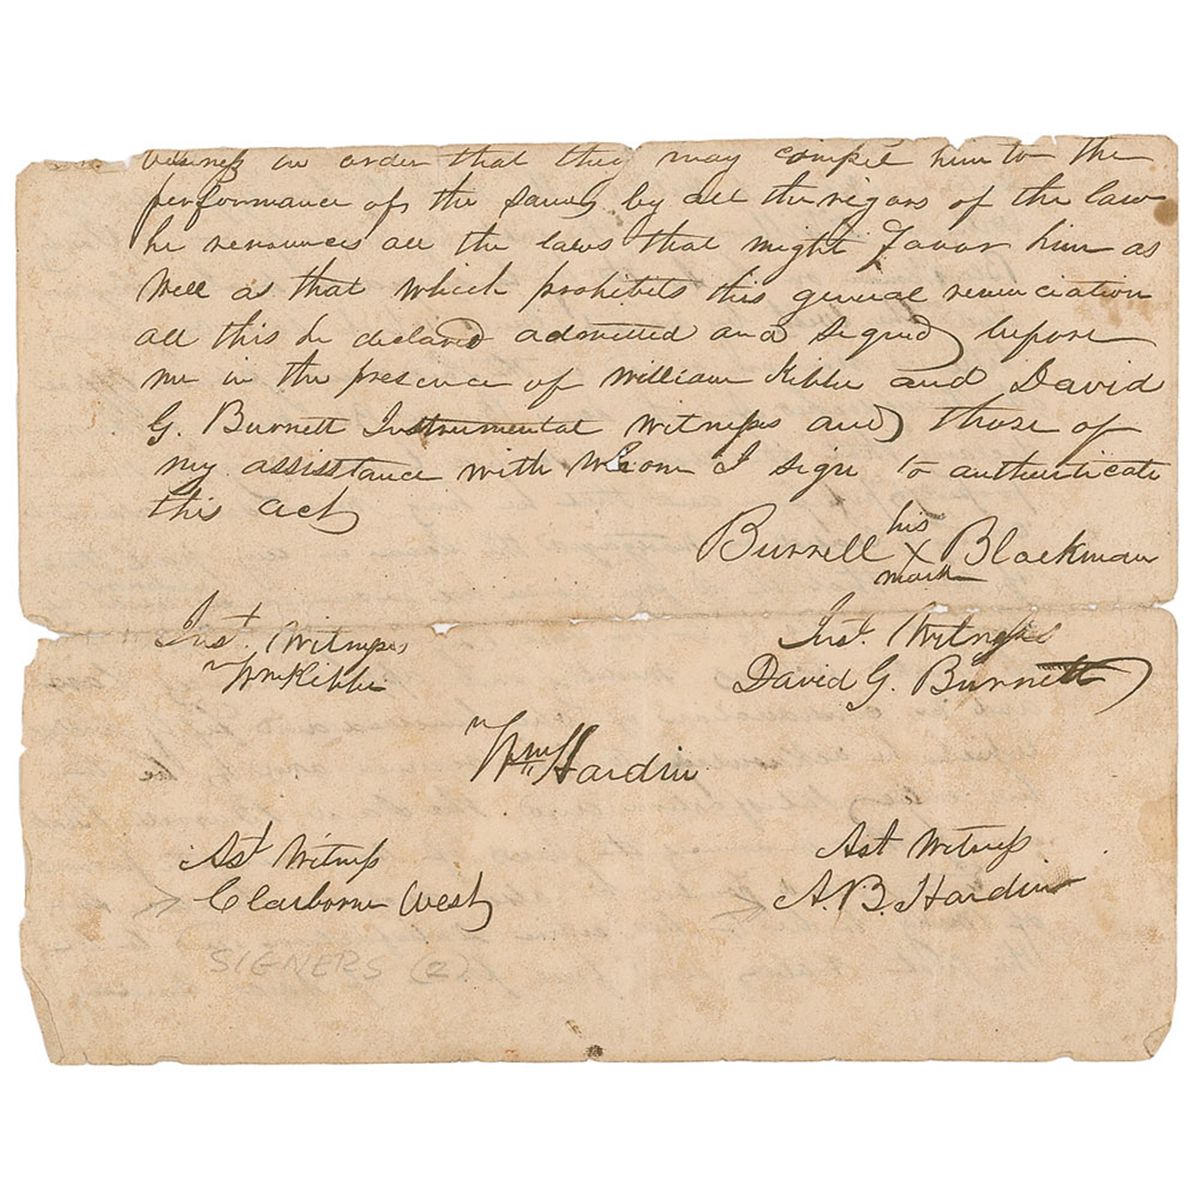 business in order that they may compel him to the
performance of the same by all the rigors of the law
he renounces all the laws that might favor him as
Well as that which prohibits this general renunciation
all this he declared admitted and signed before
me in the presence of William Kibbe and David
G. Burnett Instrumental witness and those of
my assisstance with Whom I sign to authenticate
this act
Burrell his X mark Blackman
Inst. Witness Inst. Witness
Wm Kibbe David G. Burnett
Wm. Hardin
Ast Witness Ast Witness
Claiborne West A. B. Hardin
SIGNERS (2)